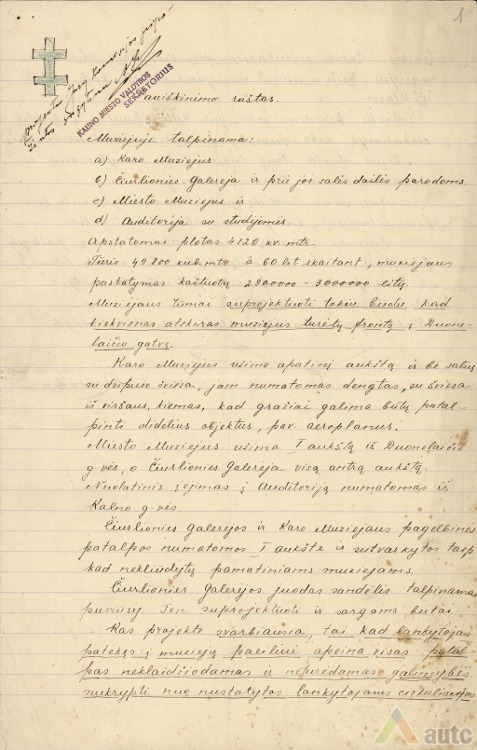 1
KAUNO MIESTO VALDYBOS
SEKRETORIUS
Paaiškinimo raštas.
Muziejuje talpinama:
a) Karo Muziejus
b) Čiurlionies Galerėja ir prie jos salės dailės parodoms
c) Miesto Muziejus ir
d) Auditorija su studijomis
Apstatomas plotas 4120 kv. mtr.
Tūris 49.800 kub. mtr., à 60 lit skaitant, muziejaus
pastatymas kaštuotų 2900000 - 3000000 litų.
Muziejaus rūmai suprojektuoti tokiu būdu, kad
kiekvienas atskiras muziejus turėtų frontą į Duone-
laičio gatvę.
Karo Muziejus užima apatinį aukštą ir be salių
su dvipuse šviesa, jam numatomas dengtas, su šviesa
iš viršaus, kiemas, kad gražiai galima būtų patal-
pinti didelius objektus, pav. aeroplanus;
Miesto Muziejus užima I aukštą iš Duonelaičio
g-vės, o Čiurlionies Galerėja visą antrą aukštą.
Nuolatinis įėjimas į Auditoriją numatomas iš
Kalno g-vės.
Čiurlionies galerėjos ir Karo Muziejaus pagelbinės
patalpos numatomos I aukšte ir sutvarkytos taip
kad nekliudytų pamatiniams muziejams.
Čiurlionies Galerėjos juodas sandėlis talpinamas
pusrūsy. Ten suprojektuoti ir sargams butai
Kas projekte svarbiausia, tai kad lankytojas
patekęs į muziejų paeiliui apeina visas patal-
pas neklaidžiodamas ir neturėdamas galimybės
nukrypti nuo nustatytos lankytojams cirkuliacijos
autc